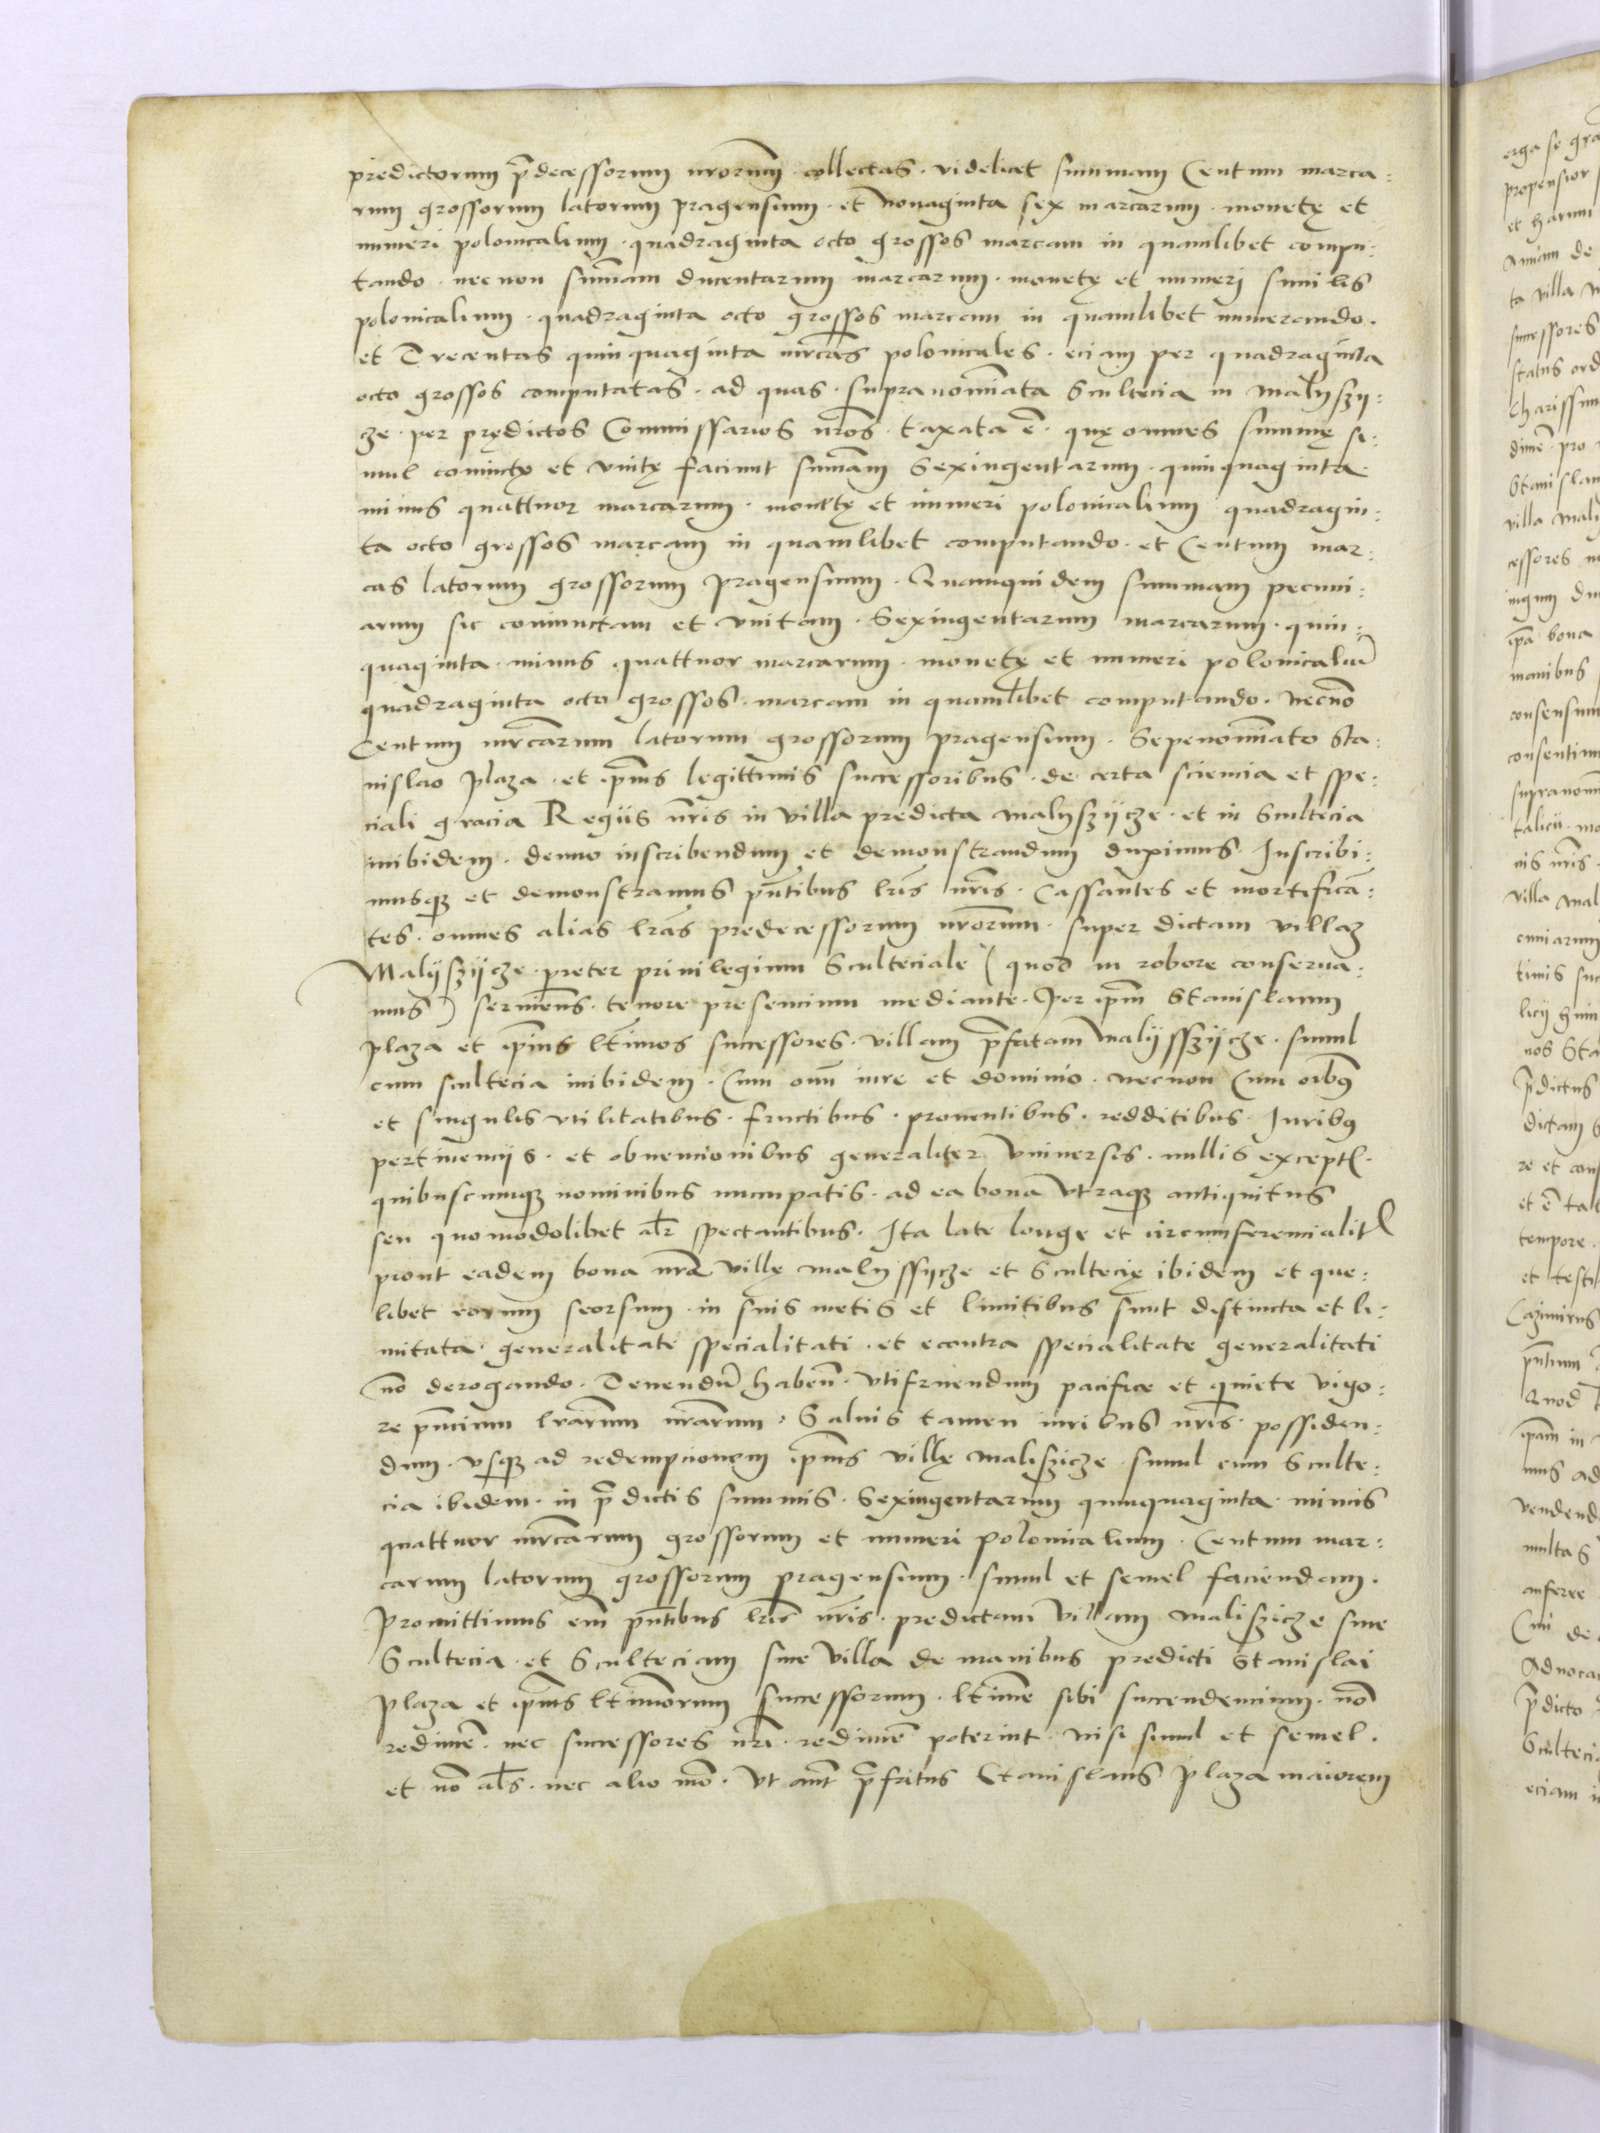 predictorum p̄decessorum nr̄orum · collectas · videlicet summam Centum marca:
rum grossorum latorum pragensium · et Nonaginta sex marcarum · monetę et
numeri polonicalium · quadraginta octo grossos marcam in quamlibet compu:
tando · nec non sum̄am ducentarum marcarum · monetę et numeri similis
polonicalium · quadraginta octo grossos marcam in quamlibet numerando ·
et Trecentas quinquaginta mr̄cas polonicales · eciam per quadraginta
octo grossos computatas · ad quas · supranom̄iata Scultecia in Malyszy:
cze · per prędictos Commissarios nr̄os · taxata ē · quę omnes summę si:
mul coniunctę et vnitę faciunt sum̄am Sexingentarum · quinquaginta ·
minus quattuor marcarum · monetę et numeri polonicalium quadragin:
ta octo grossos marcam in quamlibet computando · et Centum mar:
cas latorum grossorum pragensium · Quamquidem summam pecuni:
arum sic coniunctam et vnitam · Sexingentarum marcarum · quin:
quaginta · minus quattuor marcarum · monetę et numeri polonicaliū
quadraginta octo grossos · marcam in quamlibet computando · necnō
Centum mr̄carum latorum grossorum pragensium · Sepenom̄iato Sta:
nislao plaza · et ip̄ius legittimis successoribus · de certa sciencia et spe:
ciali gracia Regiis nr̄is in villa predicta Malyszycze · et in Scultecia
inibidem · denuo inscribendum et demonstrandum duximus Inscribi:
musqȝ et demonstramus pn̄tibus lr̄is nr̄is · Cassantes et mortificā:
tes · omnes alias lr̄as predecessorum nr̄orum · super dictam villaȝ
Malyszycze · preter priuilegium Sculteciale (quod in robore conserua:
mus) seruiens · tenore presencium mediante · Per ip̄m Stanislaum
plaza et ip̄ius lt̄imos successores · villam p̄fatam Malysszycze · simul
cum scultecia inibidem · Cum omni iure et dominio · necnon Cum oībꝯ
et singulis vtilitatibus · fructibus · prouentibus · redditibus · Juribꝯ
pertinencijs · et obuencionibus generaliter Vniuersis · nullis except̄ ·
quibuscumqȝ nominibus nuncupatis · ad ea bona vtraqȝ antiquitus
seu quomodolibet al̄r spectantibus · Ita late longe et circumferencialit̄
prout eadem bona nr̄a villę malyssycze et Scultecię ibidem et que:
libet eorum seorsum · in suis metis et limitibus sunt distincta et li:
mitata · generalitate specialitati · et econtra specialitate generalitati
nō derogando · Tenendū haben̄ · Vtifruendum pacifice et quiete vigo:
re pn̄cium lr̄arum nr̄arum · Saluis tamen iuribus nr̄is · possiden:
dum · vsqȝ ad redempcionem ip̄ius villę maliszicze simul cum Sculte:
cia ibidem · in p̄dictis summis · Sexingentarum quinquaginta · minus
quattuor mr̄carum grossorum et numeri polonicalium · Centum mar:
carum latorum grossorum pragensium · simul et semel faciendam ·
Promittimus em̄ pn̄tibus lr̄is nr̄is · predictam villam maliszicze sine
Scultecia · et Sculteciam sine villa de manibus predicti Stanislai
plaza et ip̄ius lt̄imorum successorum · lt̄ime sibi succendencium · nō
redimē · nec successores nr̄i · redimē poterint · nisi simul et semel ·
et nō al̄s · nec alio mō · Vt aut̄ p̄fatus Stanislaus plaza maiorem